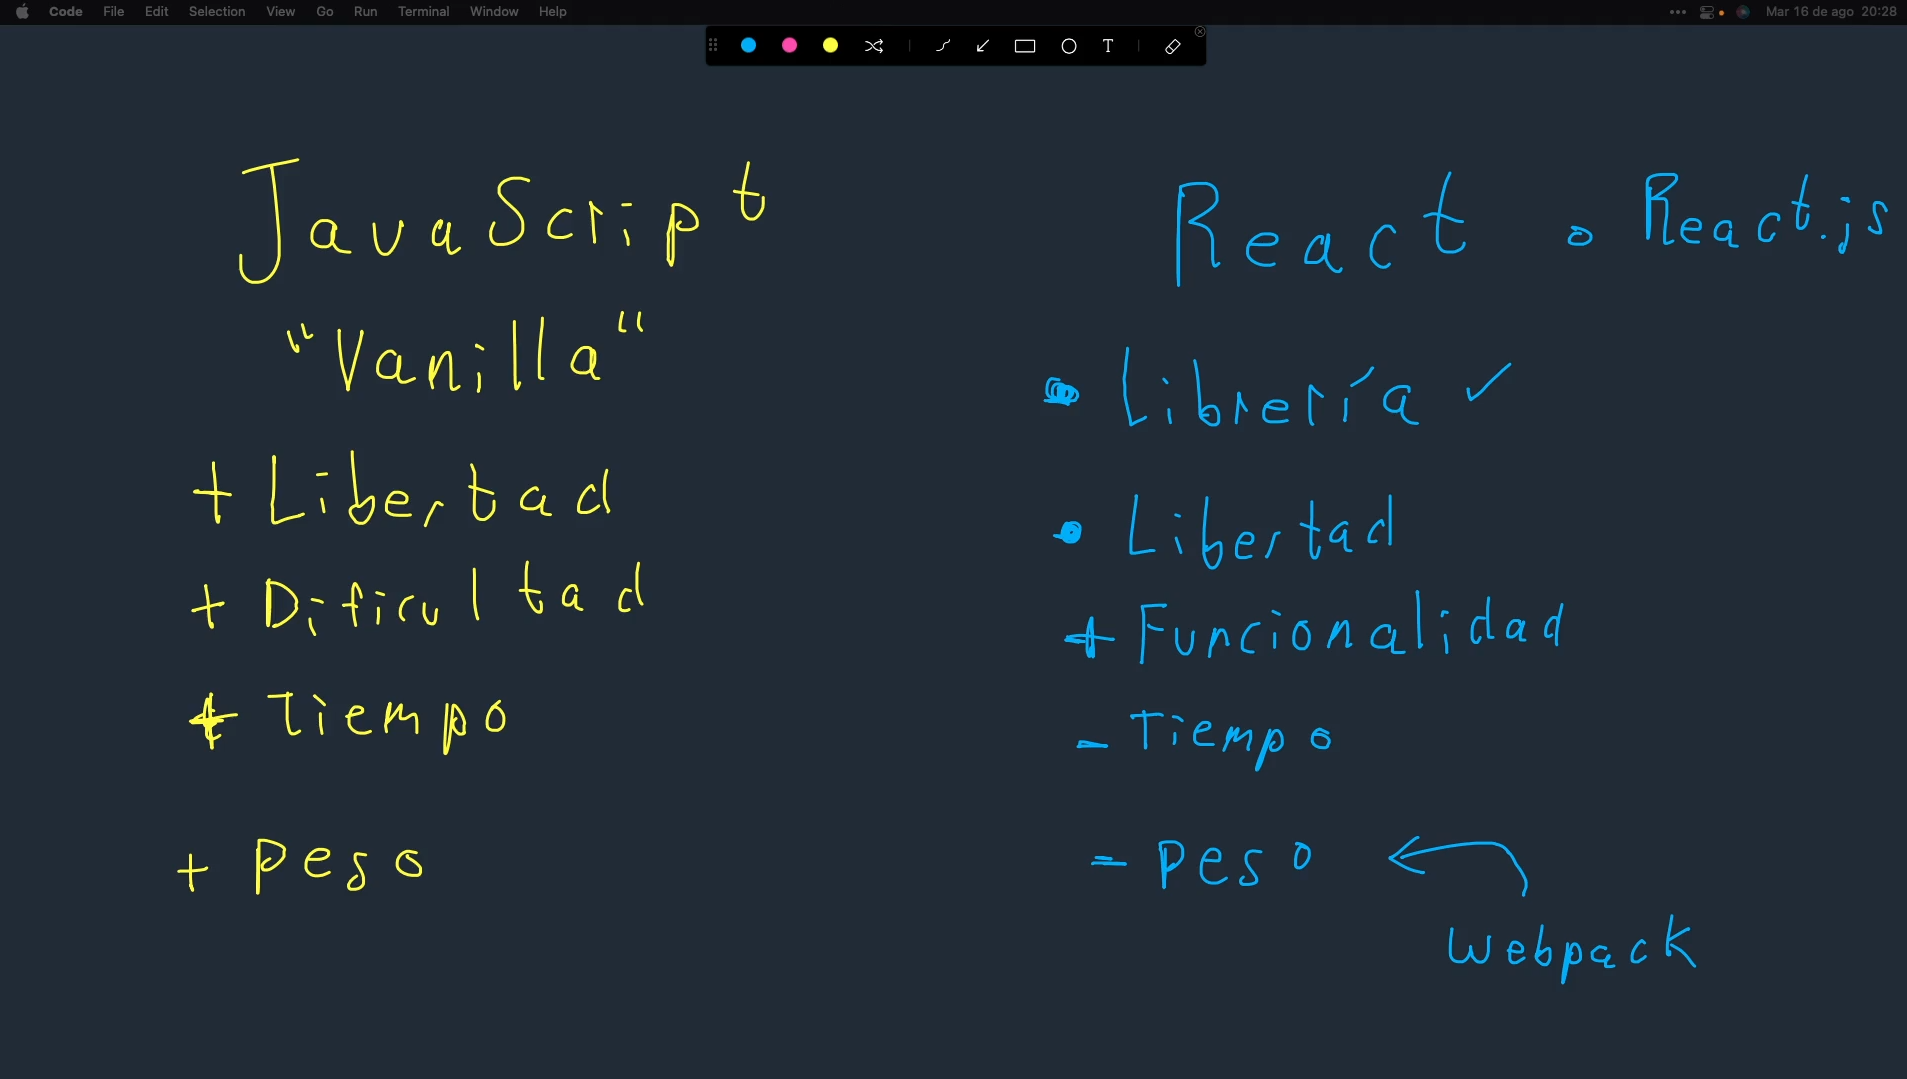 Code File Edit Selection View Go Run Terminal Window Help
Mar 16 de ago 20:28
T
JavaScript
"Vanilla"
+ Libertad
+ Dificultad
+ Tiempo
+ Peso
React o React.js
• Librería ✓
• Libertad
+ Funcionalidad
- Tiempo
- Peso
Webpack